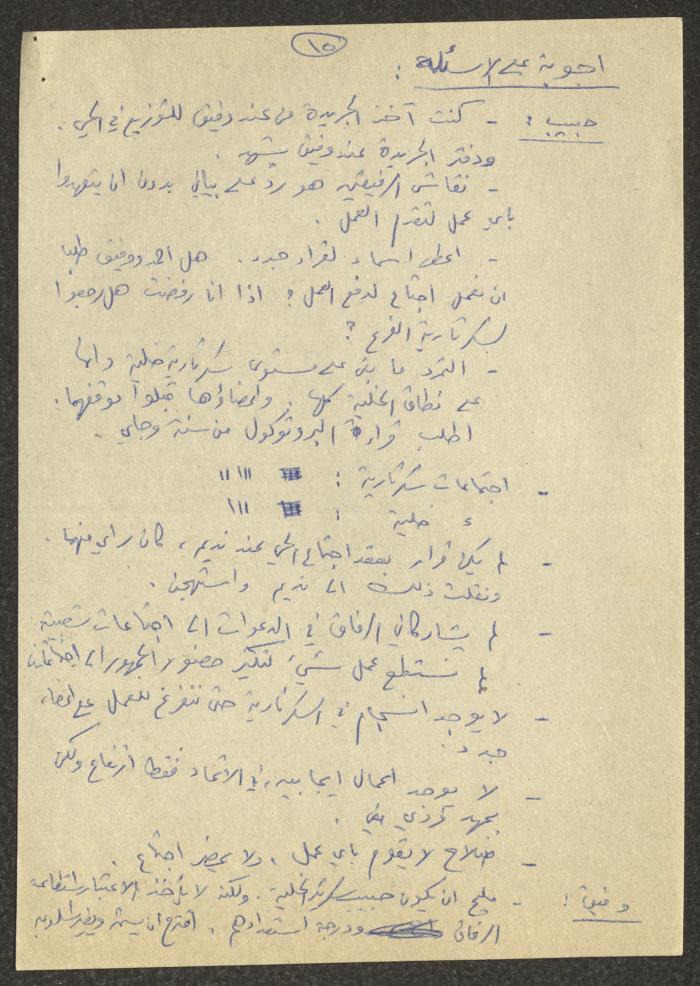 ١٥
اجوبة على الاسئلة :
حبيب : - كنت آخذ الجريدة من عند وفيق للتوزيع في الحي .
ودفتر الجريدة عند وفيق يشهد .
- نقاش الرفيقين هو رد على بياني بدون ان يتعهدوا
باي عمل لتقدم العمل .
- اعطي اسماء لقراء جدد . هل احمد ووفيق طلبا
ان نعمل اجتماع لدفع العمل ؟ اذا انا رفضت هل رجعوا
لسكرتارية الفرع ؟
- التمرد ما بقى على مستوى سكرتارية خلية وانما
على نطاق الخلية كلها . واعضاؤها قبلوا موقفهما .
اطلب قراءة البروتوكول من سنة وجاي .
- اجتماعات سكرتارية :
〃 خلية :
- لم يكن قرار بعقد اجتماع الحي عند نديم ، كان راي منهما .
ونقلت ذلك الى نديم واستهجن .
- لم يشاركاني الرفاق في الدعوات الى اجتماعات شعبية
لم نستطع عمل شيء لتكثير حضور الجمهور الى اجتماعاتنا
- لا يوجد انسجام في السكرتارية حتى نتفرغ للعمل مع اعضاء
جدد .
- لا يوجد اعمال ايجابية ، في الاتحاد فقط ارتفاع ولكن
بجهد فردي مني .
- صلاح لا يقوم باي عمل ، ولا يحضر اجتماع .
وفيق : - مليح ان يكون حبيب سكرتير الخلية . ولكنه لا يأخذ الاعتبار استطاعة
الرفاق ودرجة استعدادهم . اقترح ان